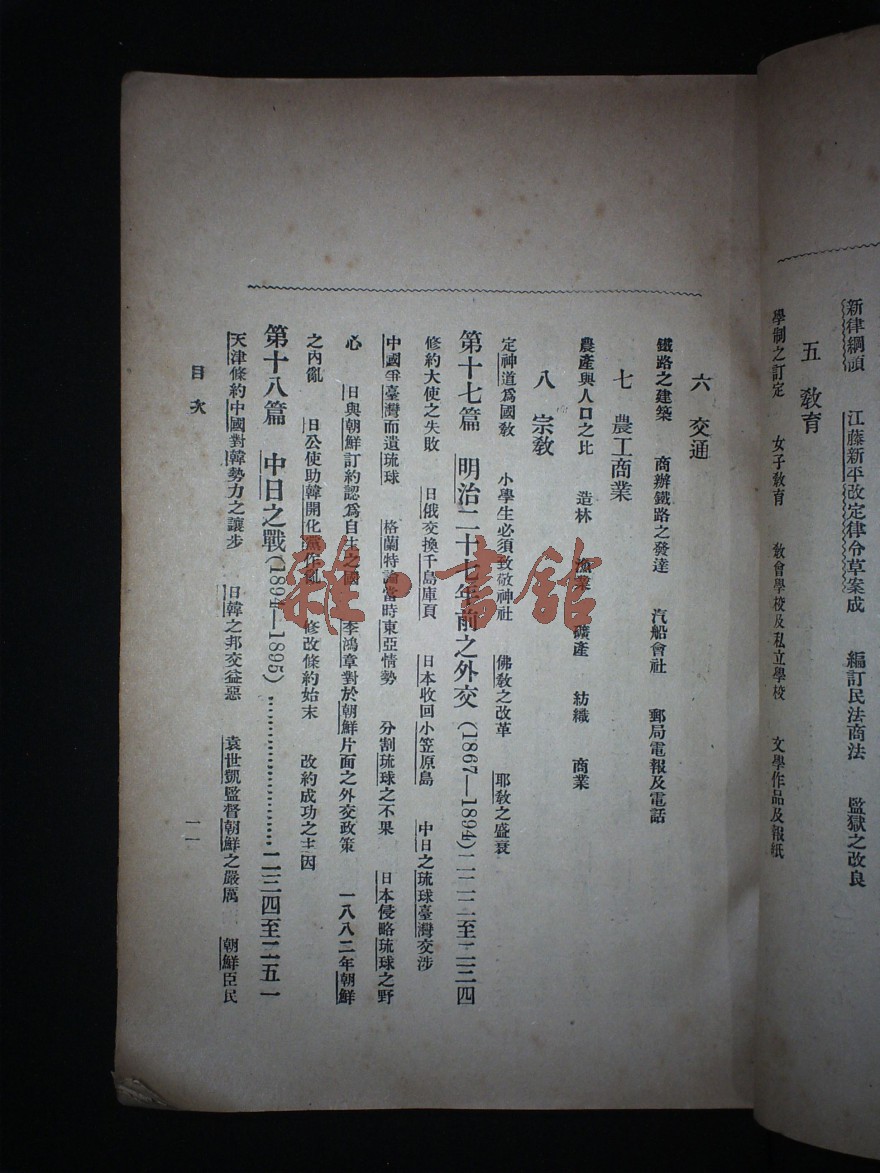 新律綱領　江藤新平改定律令草案成　編訂民法商法　監獄之改良
五　敎育
學制之訂定　女子敎育　敎會學校及私立學校　文學作品及報紙
六　交通
鐵路之建築　商辦鐵路之發達　汽船會社　郵局電報及電話
七　農工商業
農產與人口之比　造林　漁業　礦產　紡織　商業
八　宗敎
定神道爲國敎　小學生必須致敬神社　佛敎之改革　耶敎之盛衰
第十七篇　明治二十七年前之外交(1867—1894)二一二至二三四
修約大使之失敗　日俄交換千島庫頁　日本收回小笠原島　中日之琉球臺灣交涉
中國爭臺灣而遺琉球　格蘭特論當時東亞情勢　分割琉球之不果　日本侵略琉球之野
心　日與朝鮮訂約認爲自主之國　李鴻章對於朝鮮片面之外交政策　一八八二年朝鮮
之內亂　日公使助韓開化黨作亂　修改條約始末　改約成功之主因
第十八篇　中日之戰(1894—1895)……………………二三四至二五一
天津條約中國對韓勢力之讓步　日韓之邦交益惡　袁世凱監督朝鮮之嚴厲　朝鮮臣民
目次
一一
雜·書館